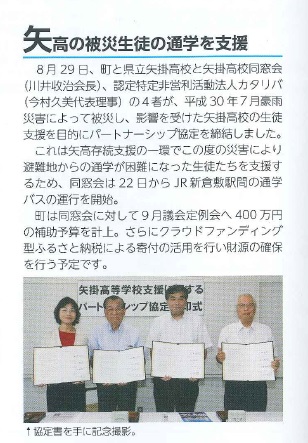 矢高の被災生徒の通学を支援
８月29日、町と県立矢掛高校と矢掛高校同窓会
(川井收治会長)、認定特定非営利活動法人カタリバ
(今村久美代表理事)の４者が、平成30年７月豪雨
災害によって被災し、影響を受けた矢掛高校の生徒
支援を目的にパートナーシップ協定を締結しました。
これは矢高存続支援の一環でこの度の災害により
避難地からの通学が困難になった生徒たちを支援す
るため、同窓会は22日からJR新倉敷駅間の通学
バスの運行を開始。
町は同窓会に対して９月議会定例会へ400万円
の補助予算を計上。さらにクラウドファンディング
型ふるさと納税による寄付の活用を行い財源の確保
を行う予定です。
矢掛高等学校支援に関する
パートナーシップ協定
印式
↑協定書を手に記念撮影。